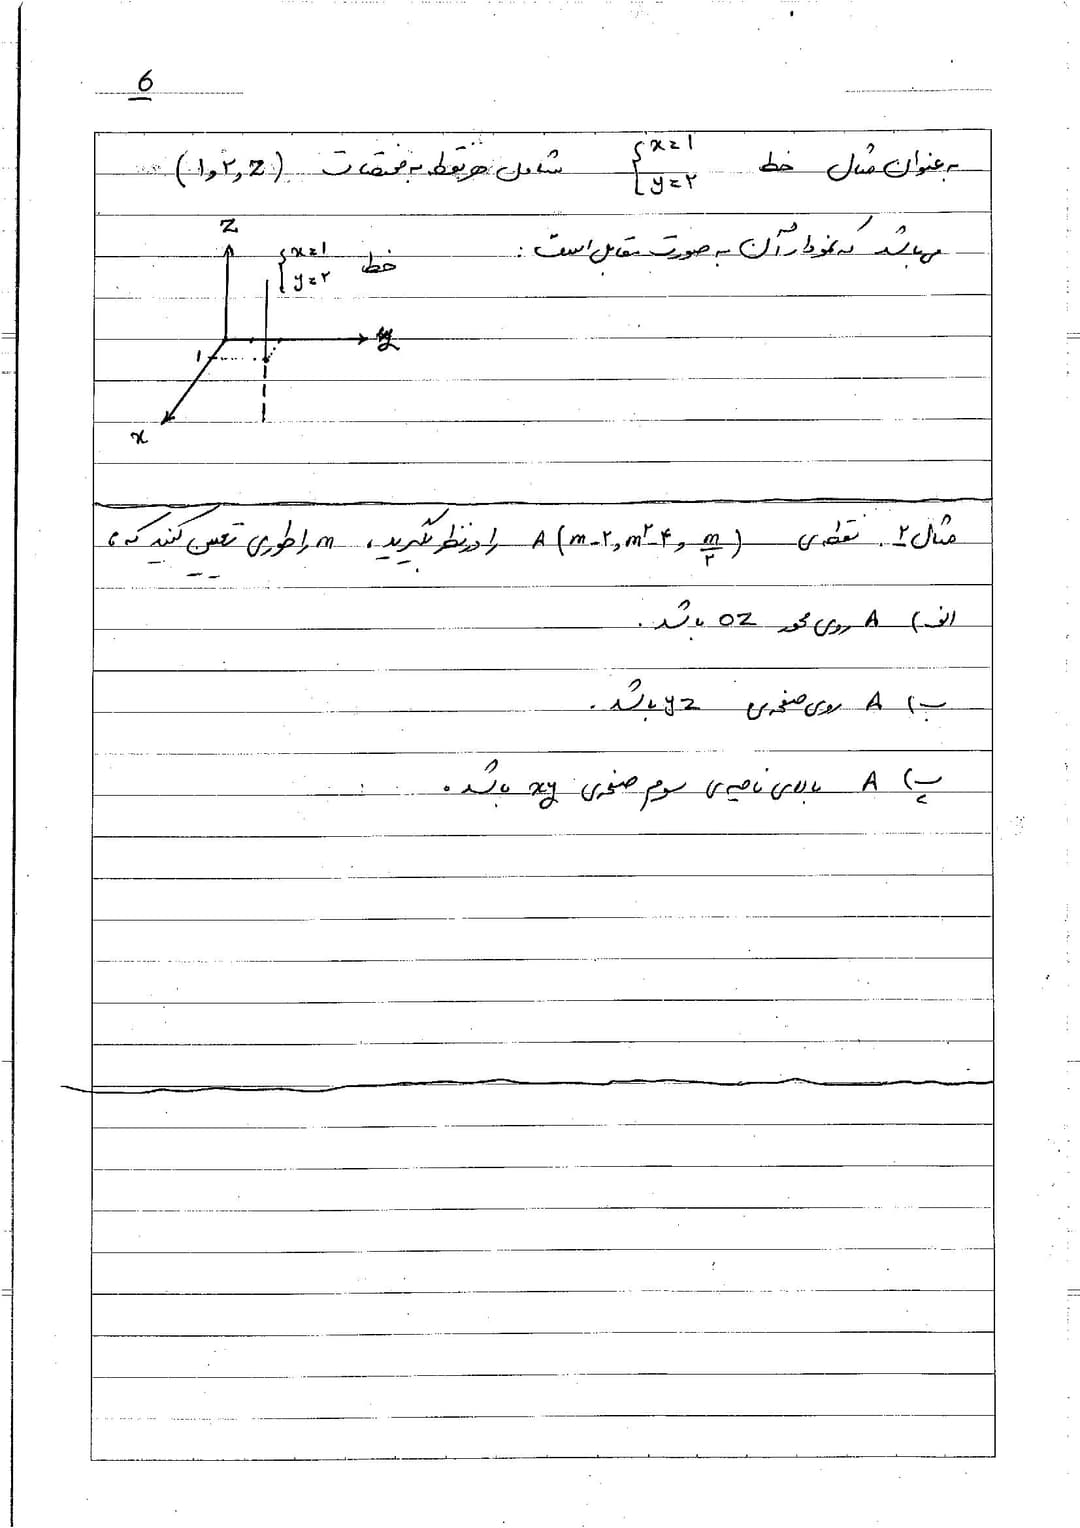 6
به عنوان مثال خط {x=1 y=۲ شامل هر نقطه به مختصات (۱,۲,z)
می‌باشد که نمودار آن به صورت مقابل است:
z
خط {x=1 y=۲
y
1
x
مثال ۲. نقطه‌ی A(m-۲, m^۲-۴, m/۲) را در نظر بگیرید، m را طوری تعیین کنید که:
الف) A روی محور oz باشد.
ب) A روی صفحه‌ی yz باشد.
پ) A بالای ناحیه‌ی سوم صفحه‌ی xy باشد.